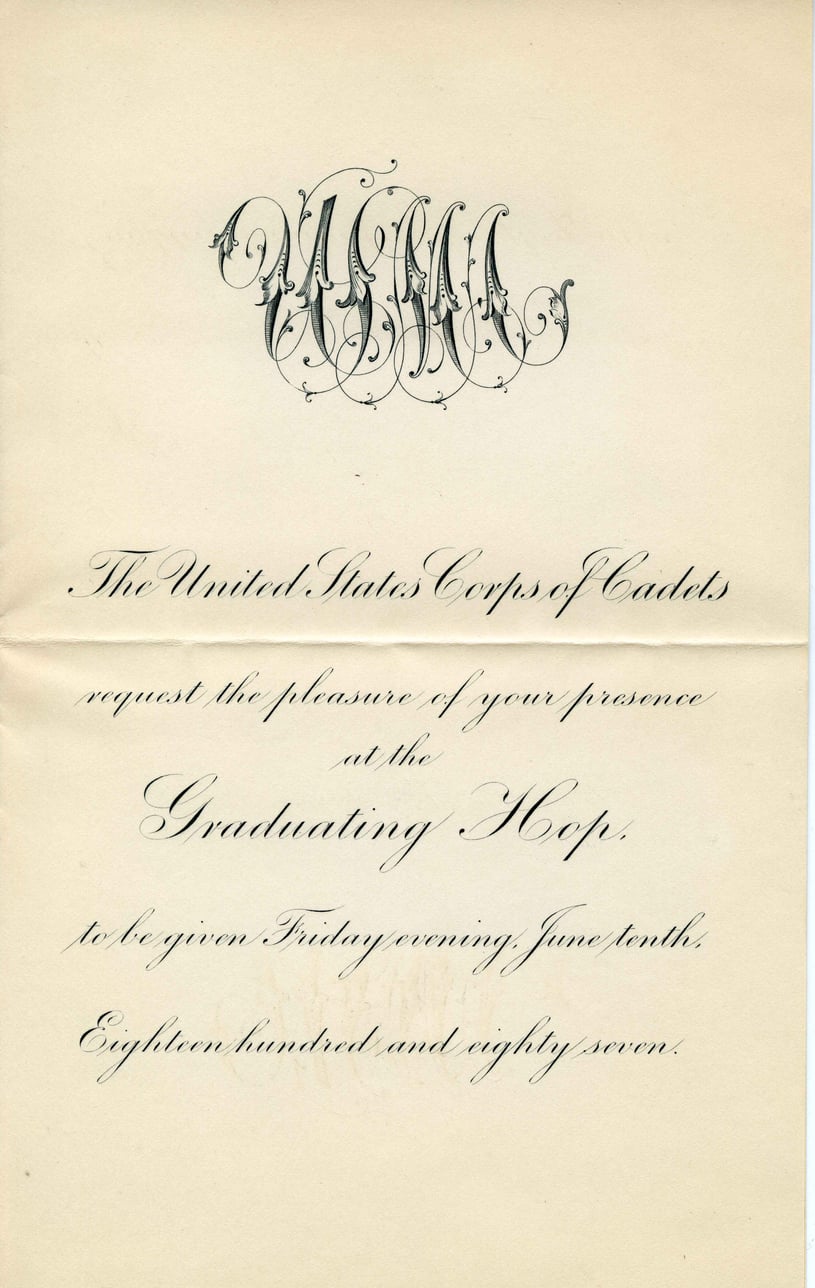 The United States Corps of Cadets
request the pleasure of your presence
at the
Graduating Hop.
to be given Friday evening, June tenth,
Eighteen hundred and eighty seven.